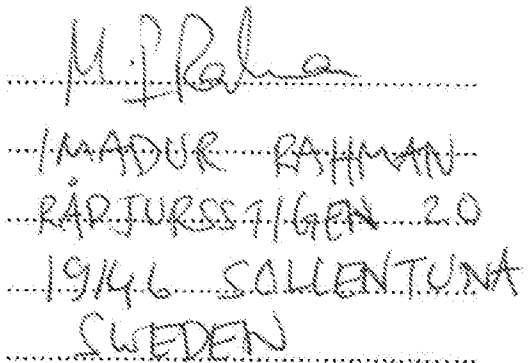 M. I Rahman
IMADUR RAHMAN
RÅDJURSSTIGEN 20
19146 SOLLENTUNA
SWEDEN